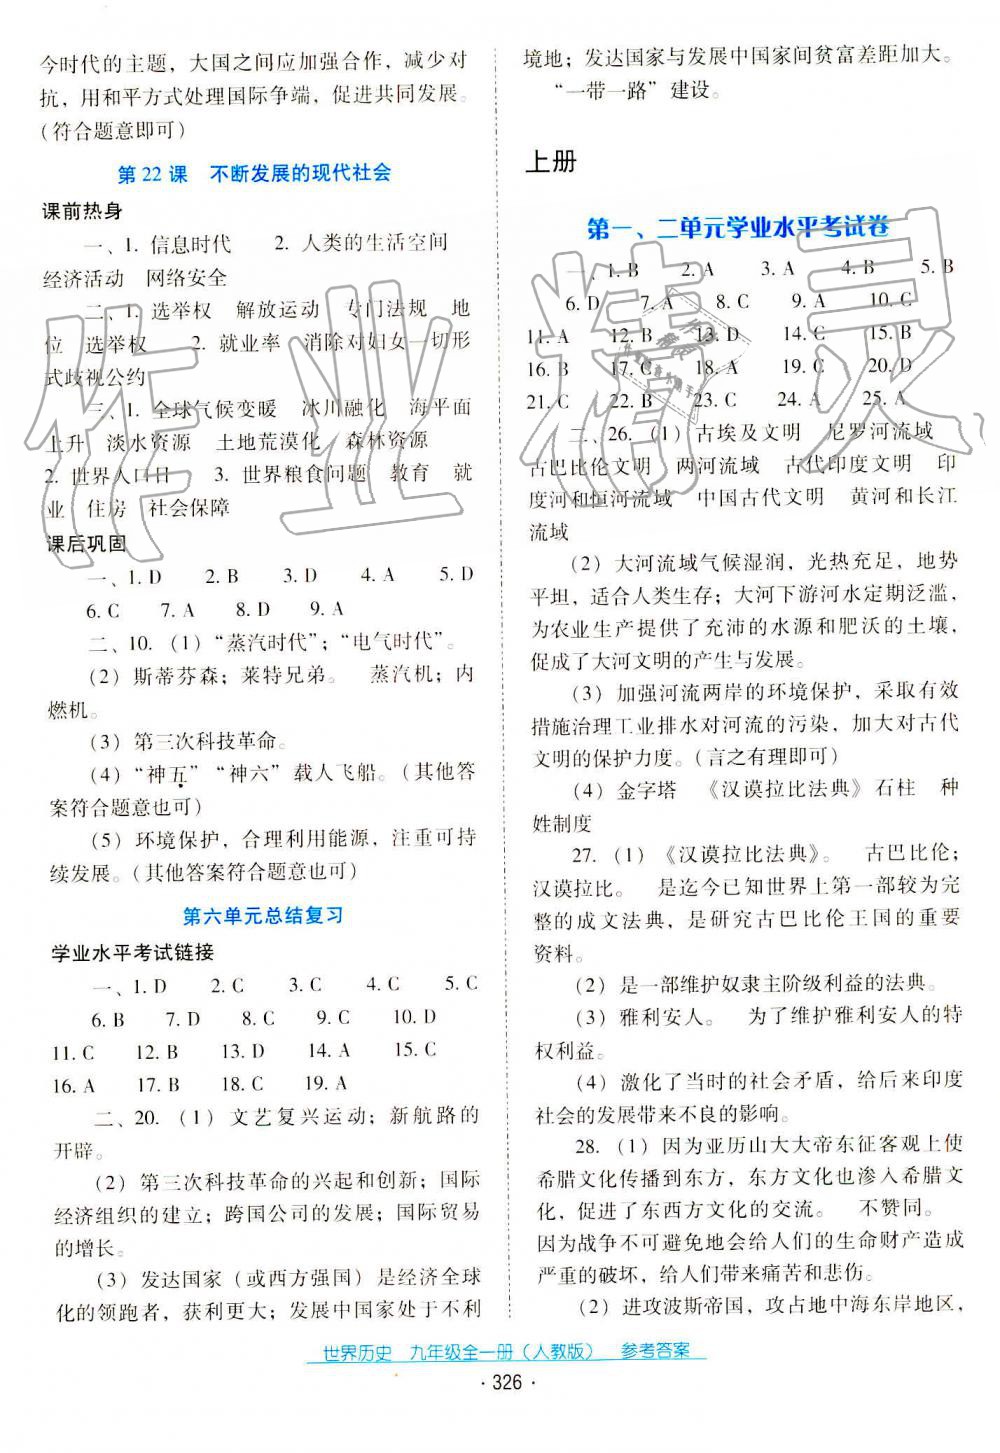 今时代的主题，大国之间应加强合作，减少对
抗，用和平方式处理国际争端，促进共同发展。
（符合题意即可）
第 22 课　不断发展的现代社会
课前热身
一、1. 信息时代　2. 人类的生活空间
经济活动　网络安全
二、1. 选举权　解放运动　专门法规　地
位　选举权　2. 就业率　消除对妇女一切形
式歧视公约
三、1. 全球气候变暖　冰川融化　海平面
上升　淡水资源　土地荒漠化　森林资源
2. 世界人口日　3. 世界粮食问题　教育　就
业　住房　社会保障
课后巩固
一、1. D　2. B　3. D　4. A　5. D
6. C　7. A　8. D　9. A
二、10.（1）“蒸汽时代”；“电气时代”。
（2）斯蒂芬森；莱特兄弟。　蒸汽机；内
燃机。
（3）第三次科技革命。
（4）“神五”“神六”载人飞船。（其他答
案符合题意也可）
（5）环境保护，合理利用能源，注重可持
续发展。（其他答案符合题意也可）
第六单元总结复习
学业水平考试链接
一、1. D　2. C　3. C　4. C　5. C
6. B　7. D　8. C　9. C　10. D
11. C　12. B　13. D　14. A　15. C
16. A　17. B　18. C　19. A
二、20.（1）文艺复兴运动；新航路的
开辟。
（2）第三次科技革命的兴起和创新；国际
经济组织的建立；跨国公司的发展；国际贸易
的增长。
（3）发达国家（或西方强国）是经济全球
化的领跑者，获利更大；发展中国家处于不利
境地；发达国家与发展中国家间贫富差距加大。
“一带一路”建设。
上册
第一、二单元学业水平考试卷
一、1. B　2. A　3. A　4. B　5. B
6. D　7. A　8. C　9. A　10. C
11. A　12. B　13. D　14. C　15. B
16. B　17. C　18. A　19. C　20. D
21. C　22. B　23. C　24. A　25. A
二、26.（1）古埃及文明　尼罗河流域
古巴比伦文明　两河流域　古代印度文明　印
度河和恒河流域　中国古代文明　黄河和长江
流域
（2）大河流域气候湿润，光热充足，地势
平坦，适合人类生存；大河下游河水定期泛滥，
为农业生产提供了充沛的水源和肥沃的土壤，
促成了大河文明的产生与发展。
（3）加强河流两岸的环境保护，采取有效
措施治理工业排水对河流的污染，加大对古代
文明的保护力度。（言之有理即可）
（4）金字塔　《汉谟拉比法典》石柱　种
姓制度
27.（1）《汉谟拉比法典》。　古巴比伦；
汉谟拉比。　是迄今已知世界上第一部较为完
整的成文法典，是研究古巴比伦王国的重要
资料。
（2）是一部维护奴隶主阶级利益的法典。
（3）雅利安人。　为了维护雅利安人的特
权利益。
（4）激化了当时的社会矛盾，给后来印度
社会的发展带来不良的影响。
28.（1）因为亚历山大大帝东征客观上使
希腊文化传播到东方，东方文化也渗入希腊文
化，促进了东西方文化的交流。　不赞同。
因为战争不可避免地会给人们的生命财产造成
严重的破坏，给人们带来痛苦和悲伤。
（2）进攻波斯帝国，攻占地中海东岸地区，
世界历史　九年级全一册（人教版）　参考答案
· 326 ·
作业精灵